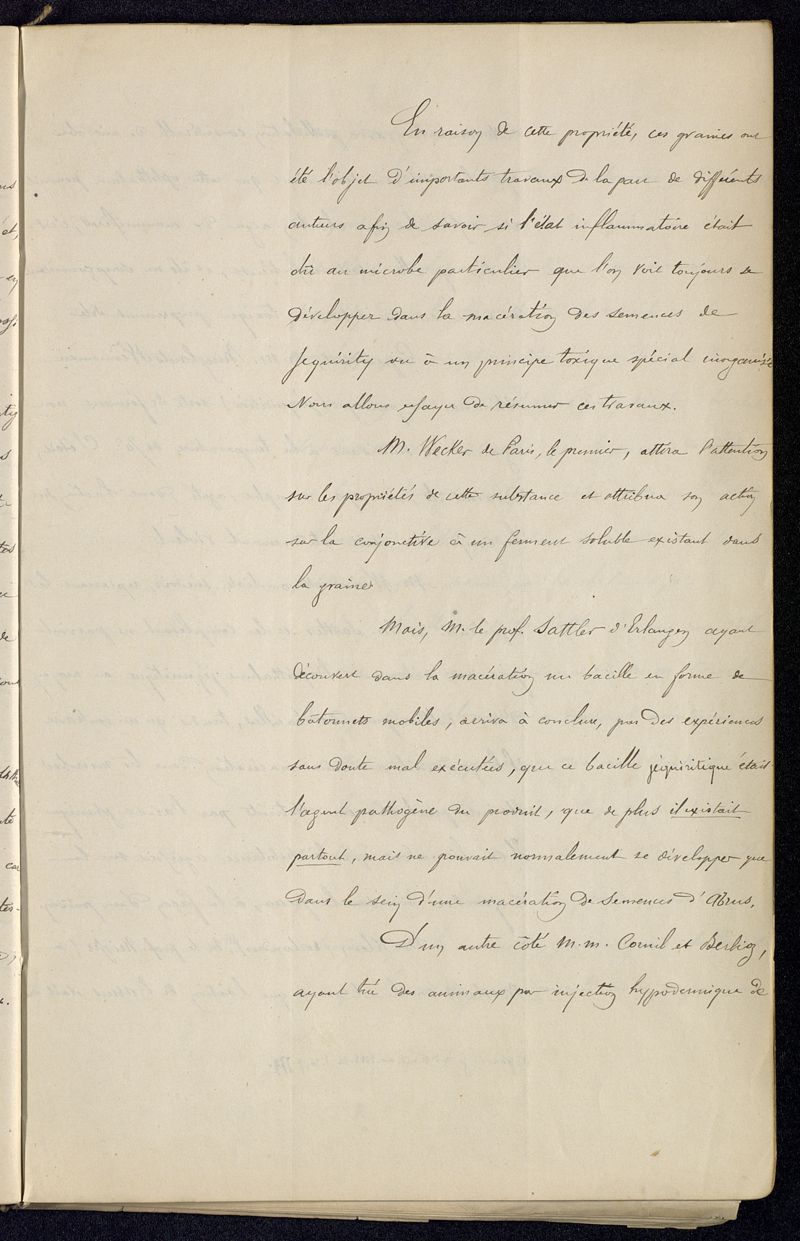 En raison de cette propriété, ces graines ont
été l'objet d'importants travaux de la part de différents
auteurs afin de savoir si l'état inflammatoire était
dû au microbe particulier que l'on voit toujours se
développer dans la macération des semences de
Jequirity ou à un principe toxique spécial inorganisé.
Nous allons essayer de résumer ces travaux.
M. Wecker de Paris, le premier, attira l'attention
sur les propriétés de cette substance et attribua son action
sur la conjonctive à un ferment soluble existant dans
la graine.
Mais, M. le prof. Sattler d'Erlangen ayant
découvert dans la macération un bacille en forme de
bâtonnets mobiles, arriva à conclure, par des expériences
sans doute mal exécutées, que ce bacille jéquiritique était
l'agent pathogène du produit, que de plus il existait
partout, mais ne pouvait normalement se développer que
dans le sein d'une macération de semences d'Abrus.
D'un autre côté M.M. Cornil et Berlioz,
ayant tué des animaux par injection hypodermique de